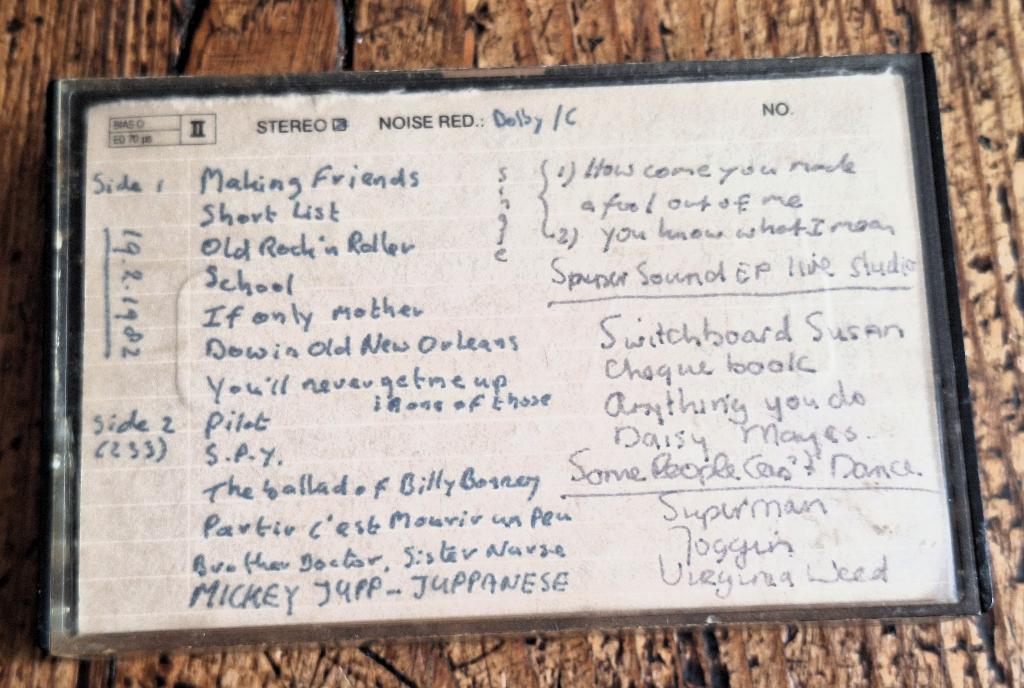 BIAS 0
EQ 70 µs
II
STEREO
NOISE RED.: Dolby /C
NO.
Side 1
19.2.1982
Making Friends
Short List
Old Rock'n Roller
School
If only mother
Dowin Old New Orleans
You'll never get me up
in one of those
Side 2
(233)
Pilot
S.P.Y.
The ballad of Billy Bonney
Partir c'est Mourir un Peu
Brother Doctor, Sister Nurse
MICKEY JUPP - JUPPANESE
Single
1) How come you made
a fool out of me
2) you know what I mean
Sound EP live studio
Switchboard Susan
Cheque book
Anything you do
Daisy Mayes.
Some People Can't Dance.
Superman
Joggin
Virginia Weed